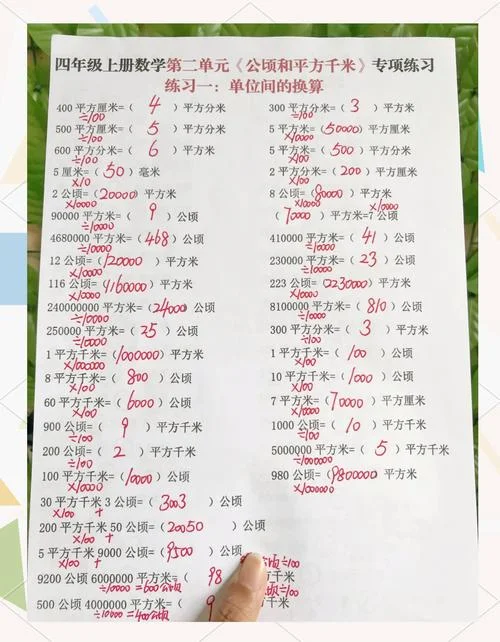 四年级上册数学第二单元《公顷和平方千米》专项练习
练习一：单位间的换算
400 平方厘米=( 4 )平方分米
÷100
500 平方厘米=( 5 )平方分米
÷100
600 平方分米=( 6 )平方米
÷100
5 厘米=( 50 )毫米
×10
2 公顷=(20000)平方米
×10000
90000 平方米=( 9 )公顷
÷10000
4680000 平方米=(468)公顷
÷10000
12 公顷=(120000)平方米
×10000
116 公顷=(1160000)平方米
×10000
240000000 平方米=(24000)公顷
÷10000
250000 平方米=( 25 )公顷
÷10000
1 平方千米=(1000000)平方米
×1000000
8 平方千米=( 800 )公顷
×100
60 平方千米=(6000)公顷
×100
900 公顷=( 9 )平方千米
÷100
200 公顷=( 2 )平方千米
÷100
100 平方千米=(10000)公顷
×100
30 平方千米 3 公顷=(3003)公顷
×100 +
200 平方千米 50 公顷=(20050)公顷
×100 +
5 平方千米 9000 公顷=(9500)公顷
×100 +
9200 公顷 6000000 平方米=( 98
÷10000=600公顷
500 公顷 4000000 平方米=( 9
÷10000=400公顷
300 平方分米=( 3 )平方米
÷100
5 平方米=(50000)平方厘米
×10000
5 平方米=( 500 )平方分米
×100
2 平方分米=( 200 )平方厘米
×100
8 公顷=(80000)平方米
×10000
×10000
(70000)平方米=7 公顷
410000 平方米=( 41 )公顷
÷10000
230000 平方米=( 23 )公顷
÷10000
223 公顷=(2230000)平方米
×10000
8100000 平方米=( 810 )公顷
÷10000
300 平方分米=( 3 )平方米
÷100
1 平方千米=( 100 )公顷
×100
10 平方千米=( 1000 )公顷
×100
7 平方米=( 70000 )平方厘米
×10000
1000 公顷=( 10 )平方千米
÷100
5000000 平方米=( 5 )平方千米
÷1000000
980 公顷=(9800000 平方米
×10000
÷100
方千米
÷100
方千米